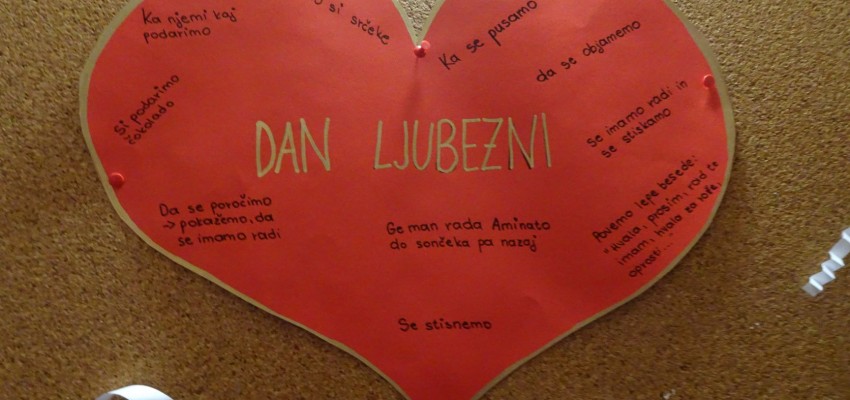 Ka njemi kaj
podarimo
si srčeke
Ka se pusamo
da se objamemo
Si podarimo
čokolado
DAN LJUBEZNI
Se imamo radi in
se stiskamo
Da se poročimo
→ pokažemo, da
se imamo radi
Ge man rada Aminato
do sončeka pa nazaj
Povemo lepe besede:
"Hvala, prosim, rad te
imam, hvala za rofe,
oprosti..."
Se stisnemo